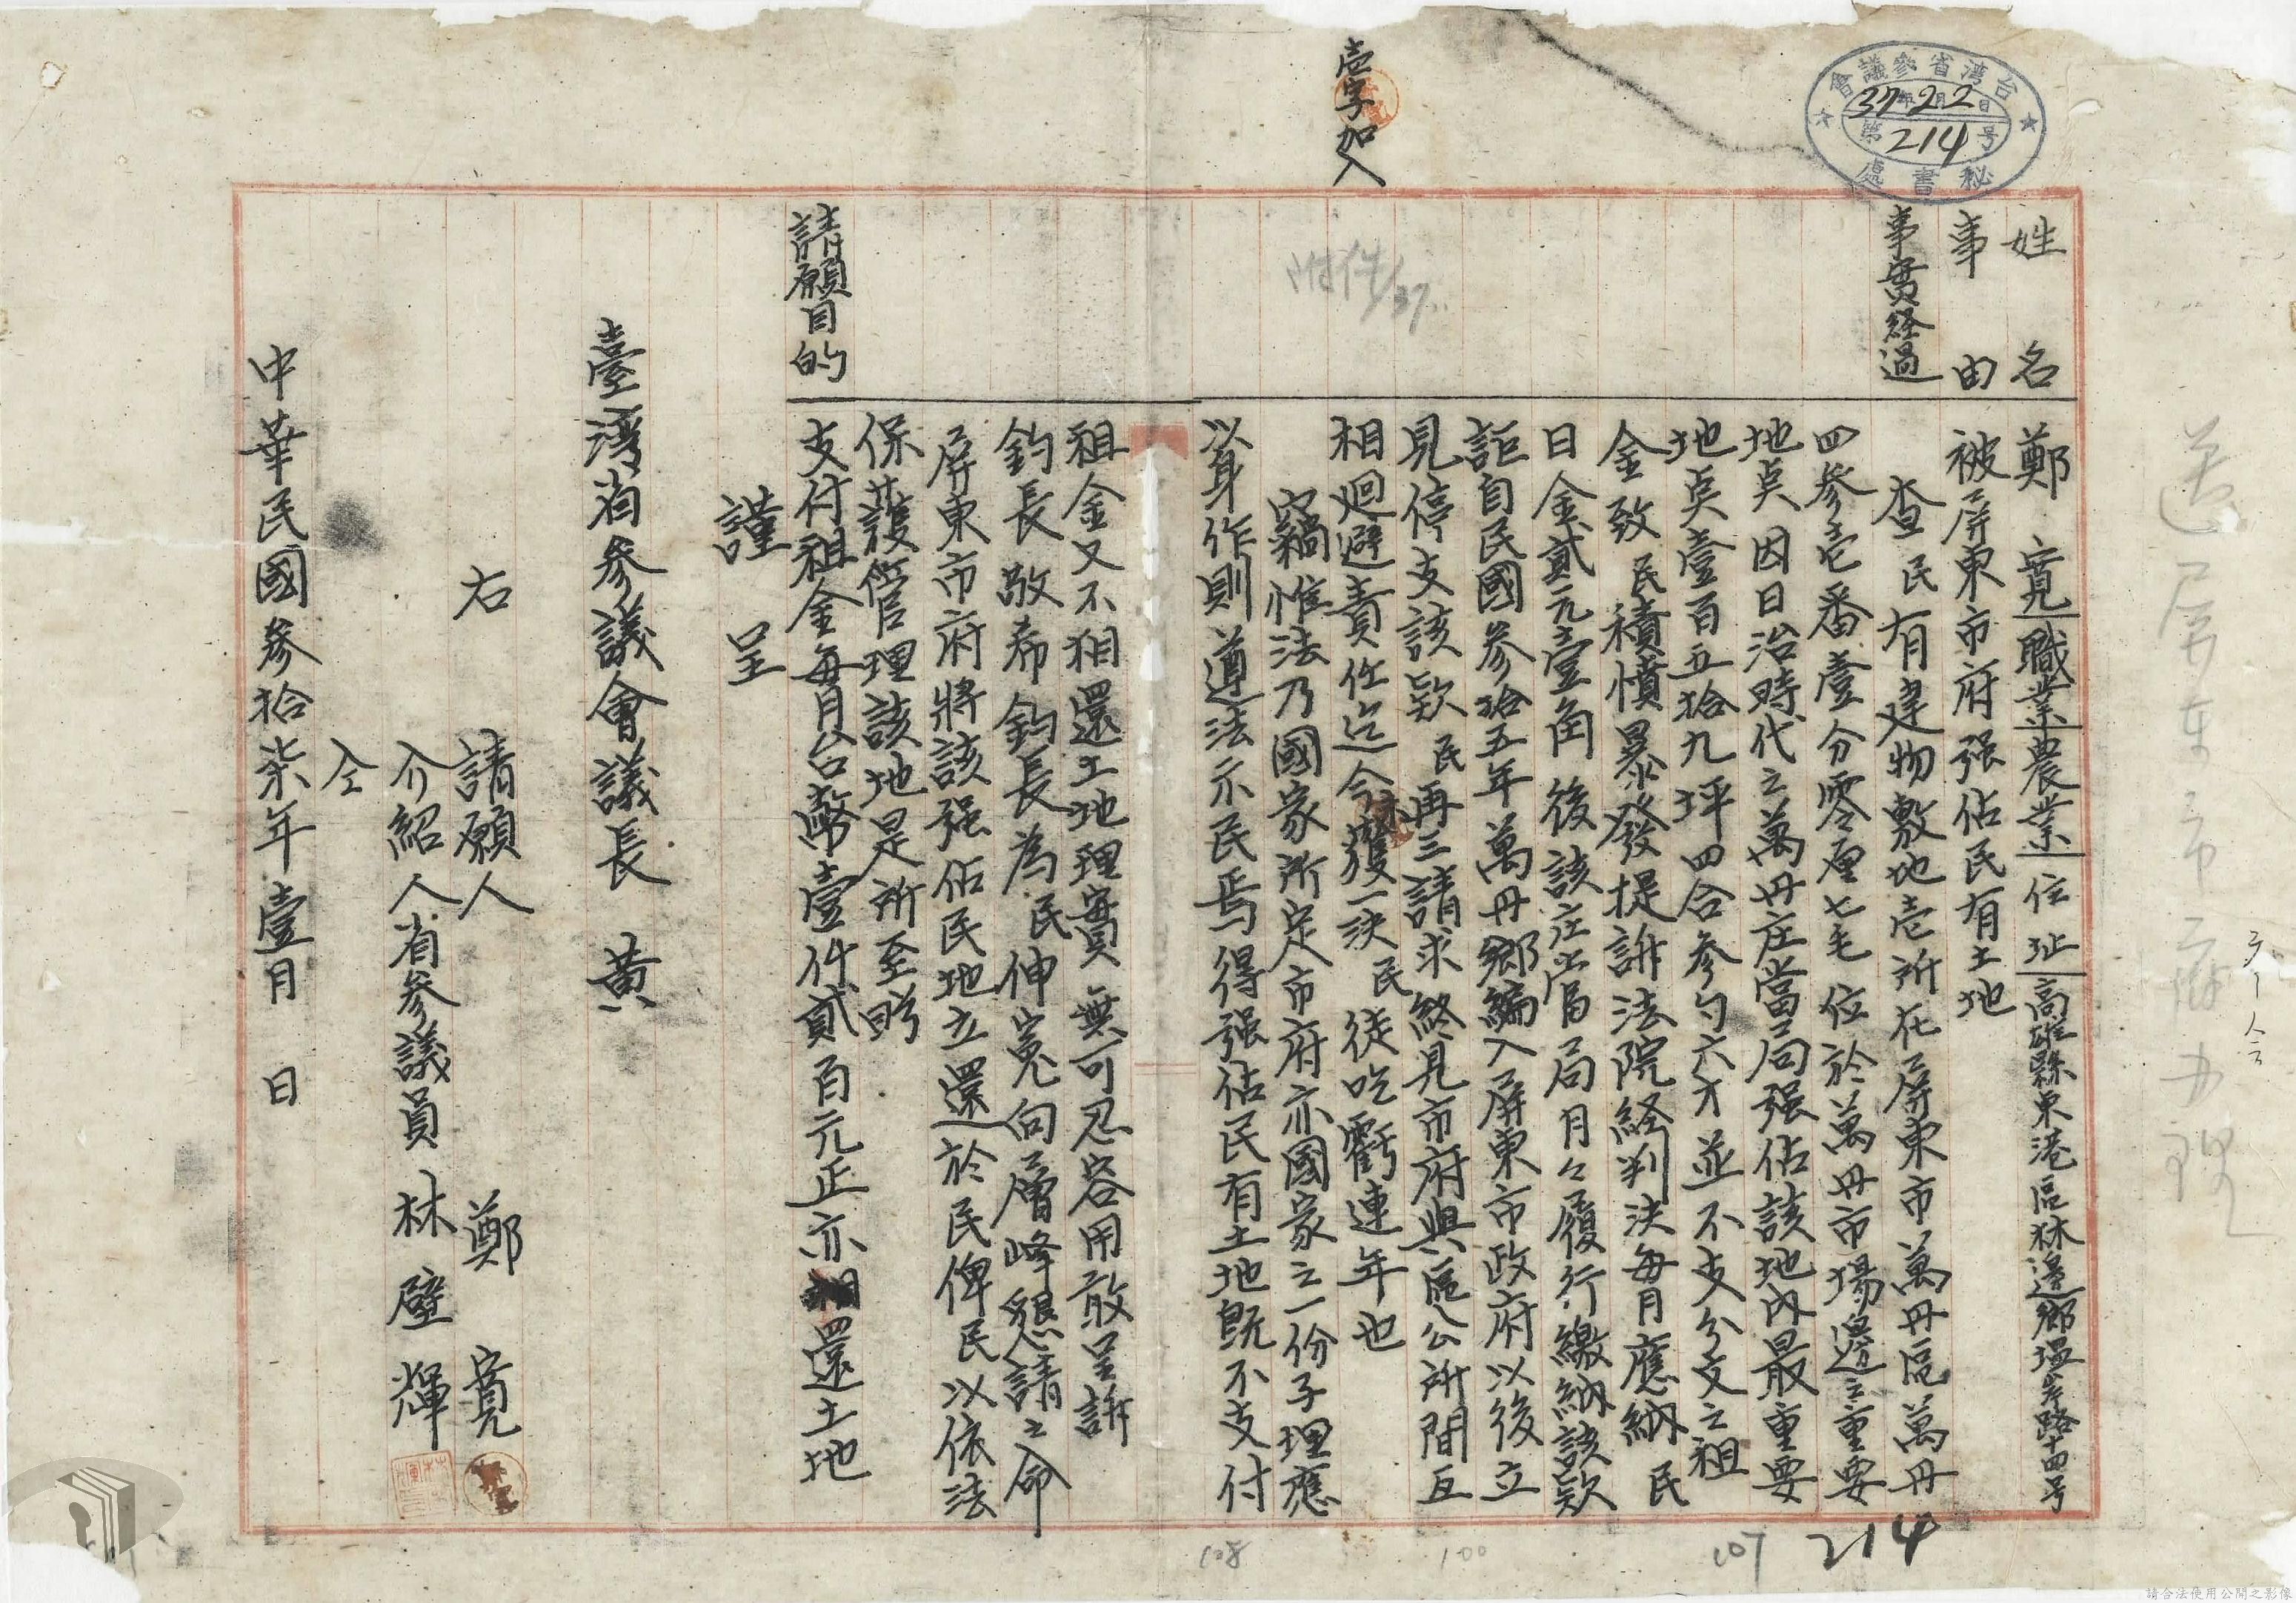 台湾省參議會
37年2月2日
第214号
秘書處
壱字加入
送屏東市政府办理
附件/37
姓名 鄭寛 職業 農業 住址 高雄縣東港區林邊鄉堤岸路十四号
事由 被屏東市府强佔民有土地
事實経過 查民有建物敷地壱所在屏東市萬丹區萬丹
四參壱番壹分零厘七毛位於萬丹市場邊之重要
地奌因日治時代之萬丹庄當局强佔該地內最重要
地奌壹百五拾九坪四合參勺六才並不支分文之租
金致民積憤暴發提訴法院経判決每月應納民
日金貳元壹角後該庄当局月々履行繳納該欵
詎自民國參拾五年萬丹鄉編入屏東市政府以後立
見停支該欵民再三請求終見市府與區公所間互
相廻避責任迄今未獲一決民徒吃虧連年也
竊惟法乃國家所定市府亦國家之一份子理應
以身作則遵法示民焉得强佔民有土地既不支付
租金又不相還土地理實無可忍容用敢呈訴
鈞長敬希鈞長為民伸寃向層峰懇請之命
屏東市府將該强佔民地立還於民俾民以依法
保護管理該地是所至盼
請願目的 支付租金每月台幣壹仟貳百元正亦還土地
謹呈
臺灣省參議會議長 黃
右 請願人 鄭寛
介紹人 省參議員 林壁輝
仝
中華民國參拾柒年壹月 日
214
107
100
108
請合法使用公開之影像